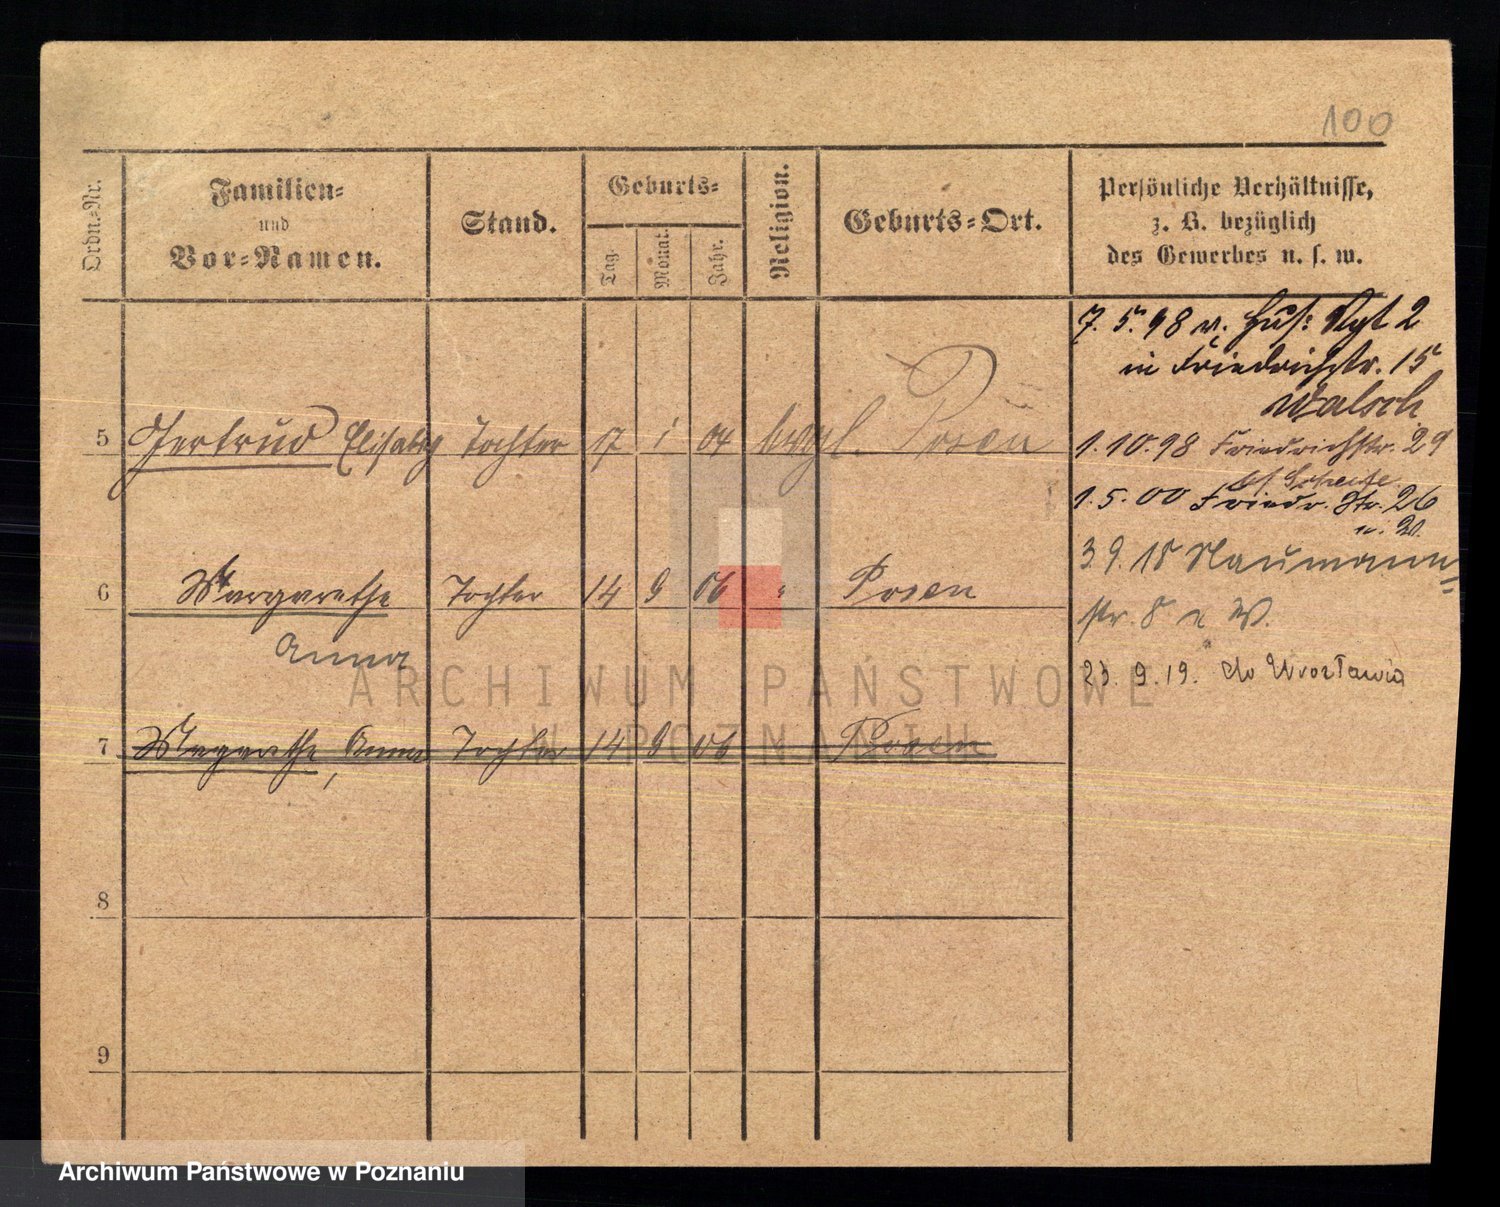 100
Ordn.-Nr.
Familien-
und
Vor-Namen.
Stand.
Geburts-
Tag.
Monat.
Jahr.
Religion.
Geburts-Ort.
Persönliche Verhältnisse,
z. B. bezüglich
des Gewerbes u. s. w.
7. 5. 98 v. Hus: Rgt 2
in Friedrichstr. 15
Walsch
5 Gertrud Elisabeth Tochter 17 1 04 evgl. Posen
1. 10. 98 Friedrichstr. 29
1. 5. 00 Friedr. Str. 26
6 Margarethe Tochter 14 9 06 " Posen
Anna
3 9. 15 Naumann-
str. 8 W.
23. 9. 19. do Wrocławia
7 Margarethe, Anna Tochter 14 9 06 Posen
8
9
ARCHIWUM PAŃSTWOWE
W POZNANIU
Archiwum Państwowe w Poznaniu